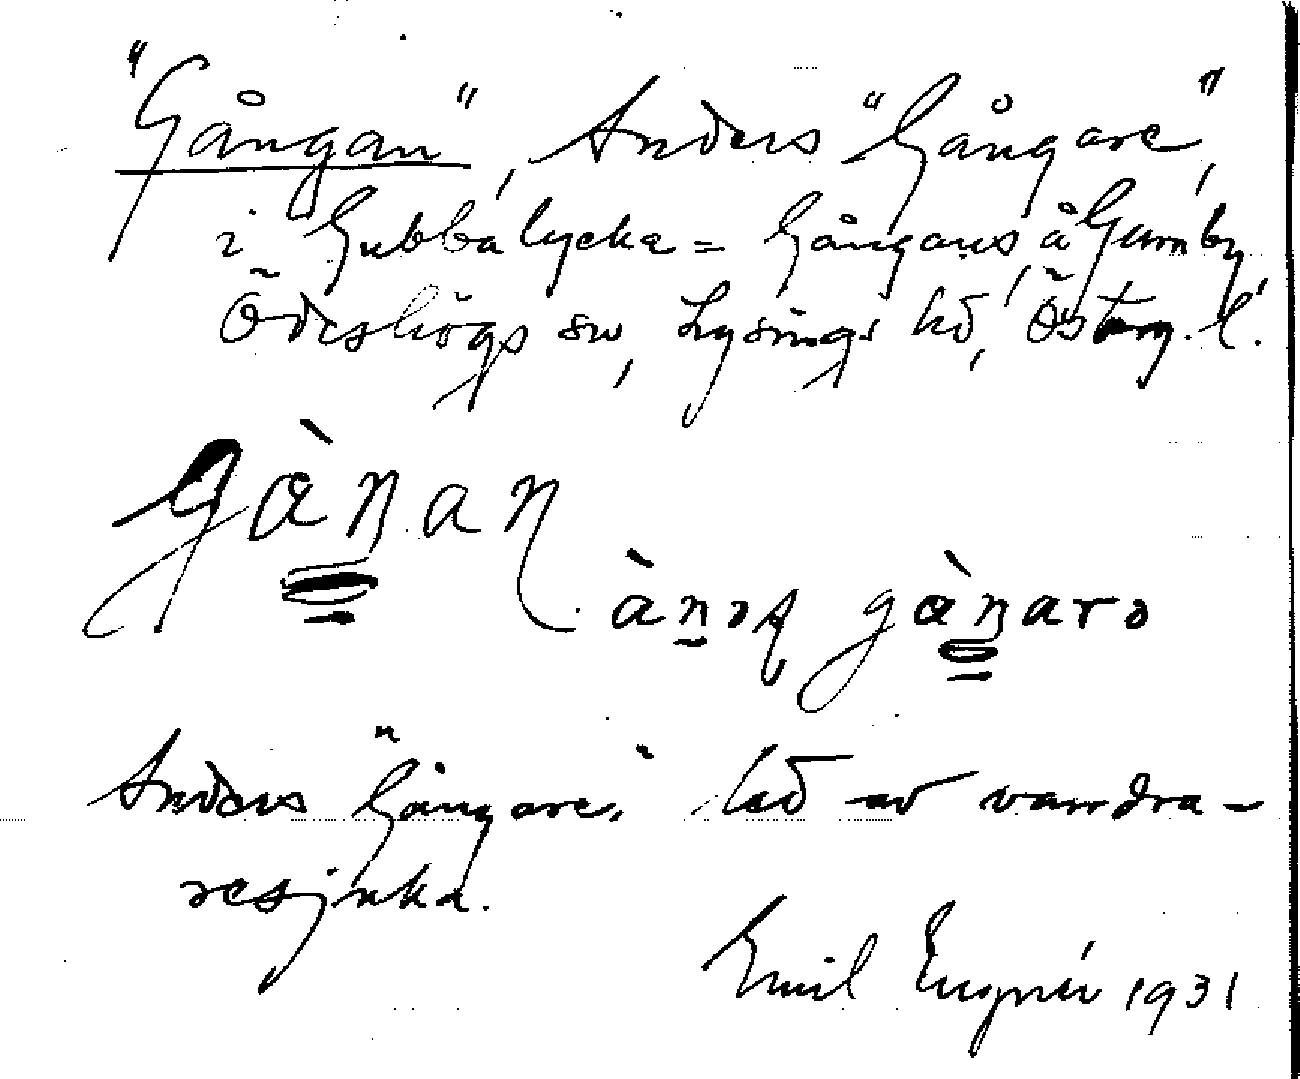 "Gångan", Anders "Gångare",
i Gubbalycka = Gångans, å Gumby
Ödeshögs sn, Lysings hd, Österg. l.
gàŋan
ànəʂ gàŋarə
Anders "Gångare" led av vandra-
resjuka.
Emil 1931